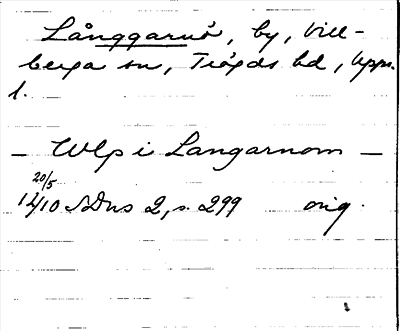 Långgarnö, by, Vill-
berga sn, Trögds hd, Upps.
l.
— Ulp i Langarnom —
20/5
1410 SDns 2, s. 299 orig.